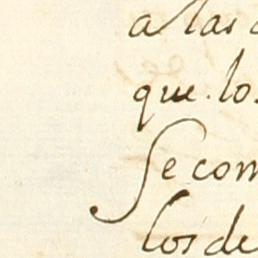 a las
que los
Se com
los de